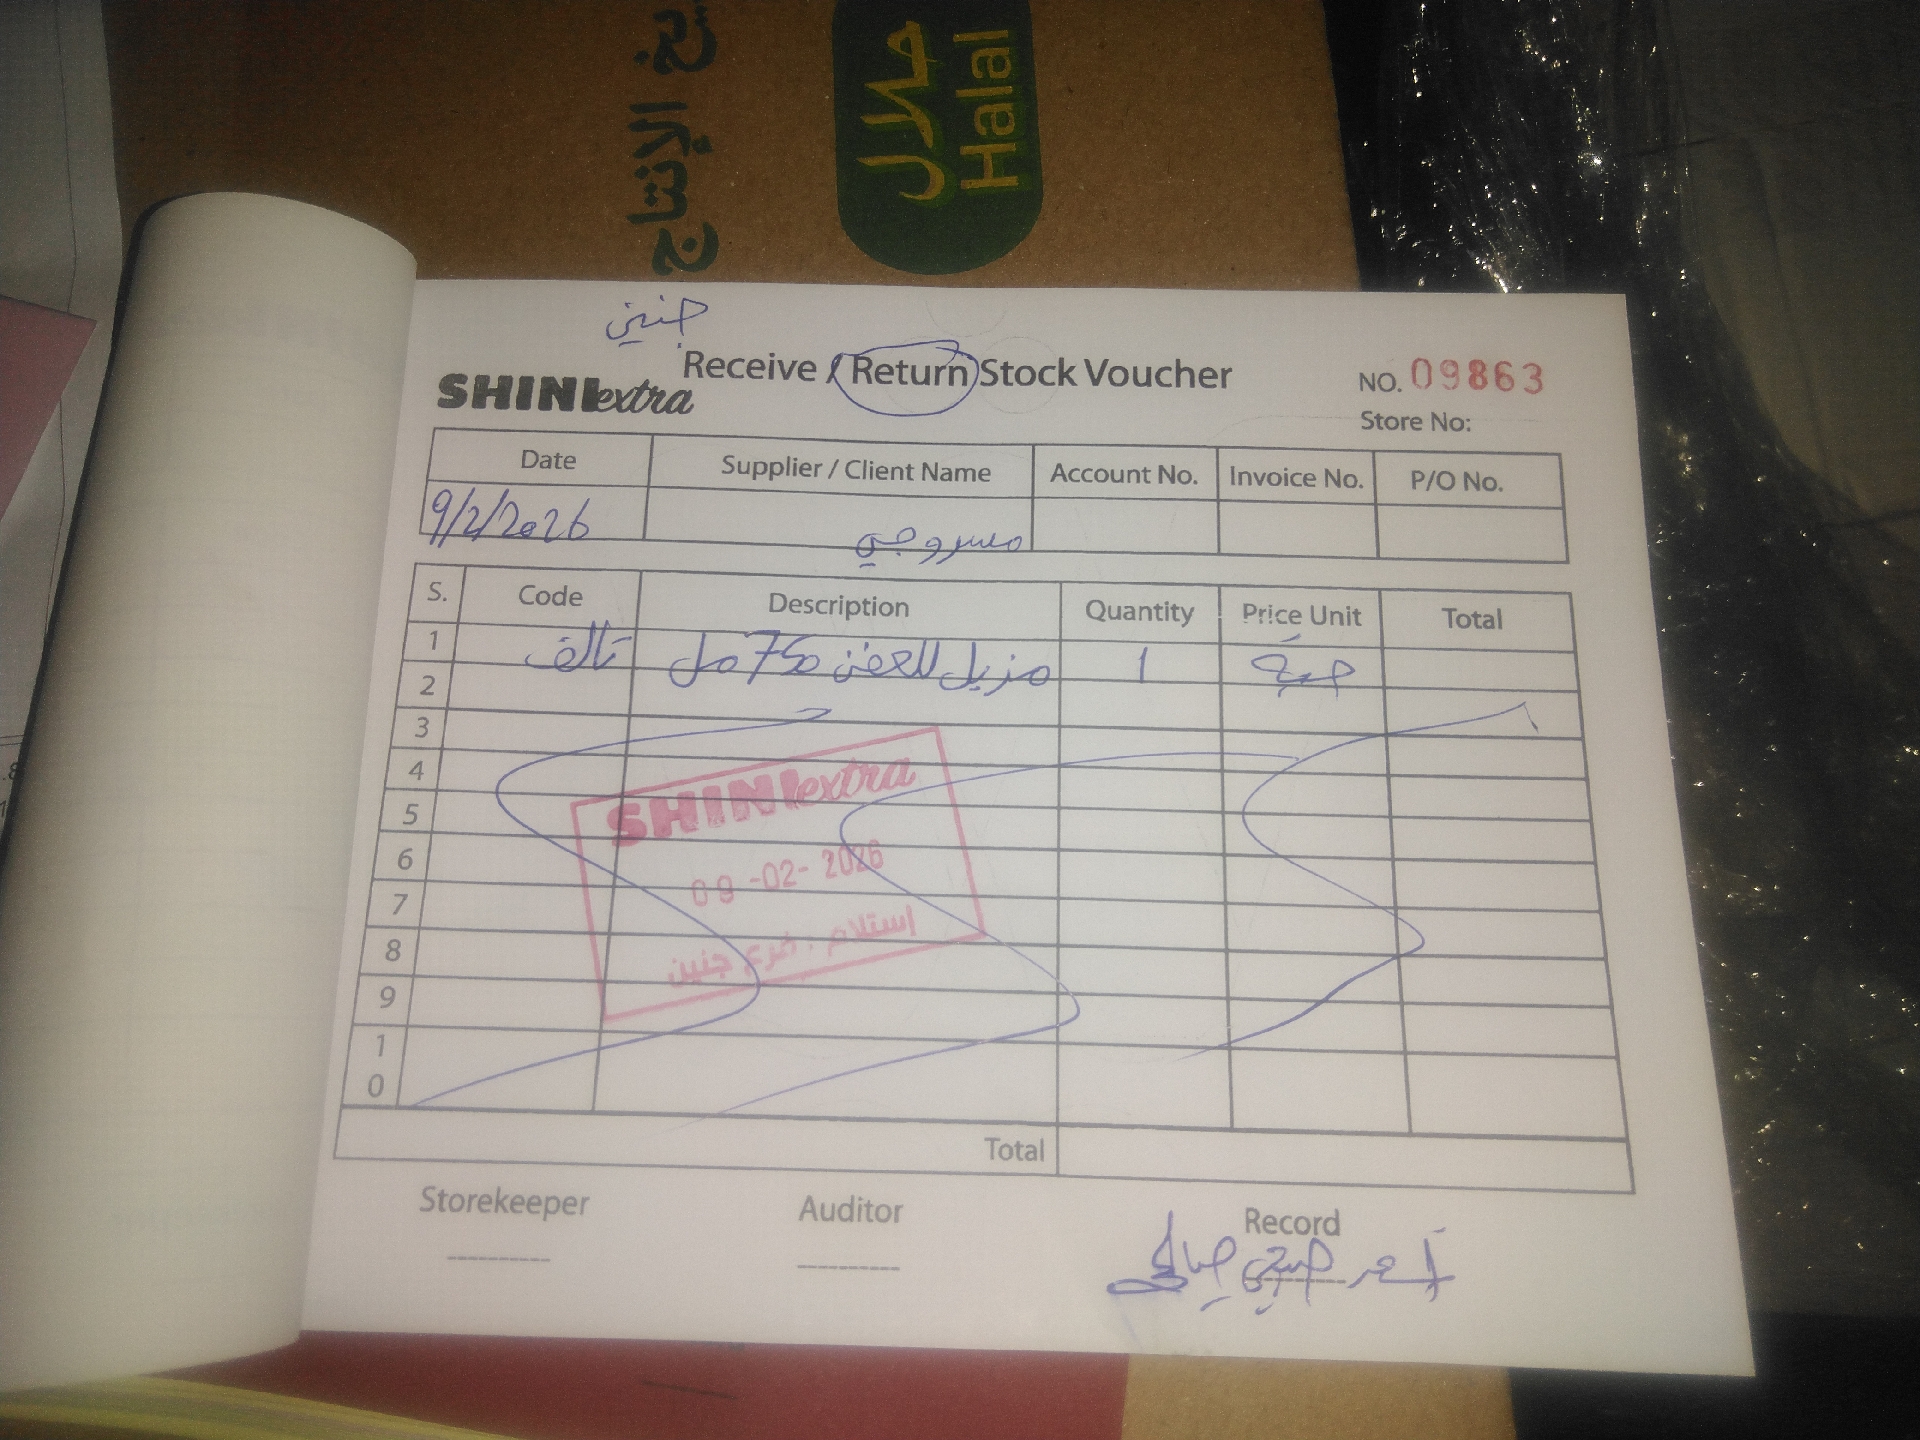 تاريخ الإنتاج
حلال
Halal
جنين
Receive / Return Stock Voucher
SHINI extra
NO. 09863
Store No:
Date Supplier / Client Name Account No. Invoice No. P/O No.
9/2/2026 مسروجي
S. Code Description Quantity Price Unit Total
1 تالف مزيل للعفن 750 مل 1 حبة
2
3
4
5
6
7
8
9
10
SHINI extra
09-02-2026
إستلام : فرع جنين
Total
Storekeeper Auditor Record